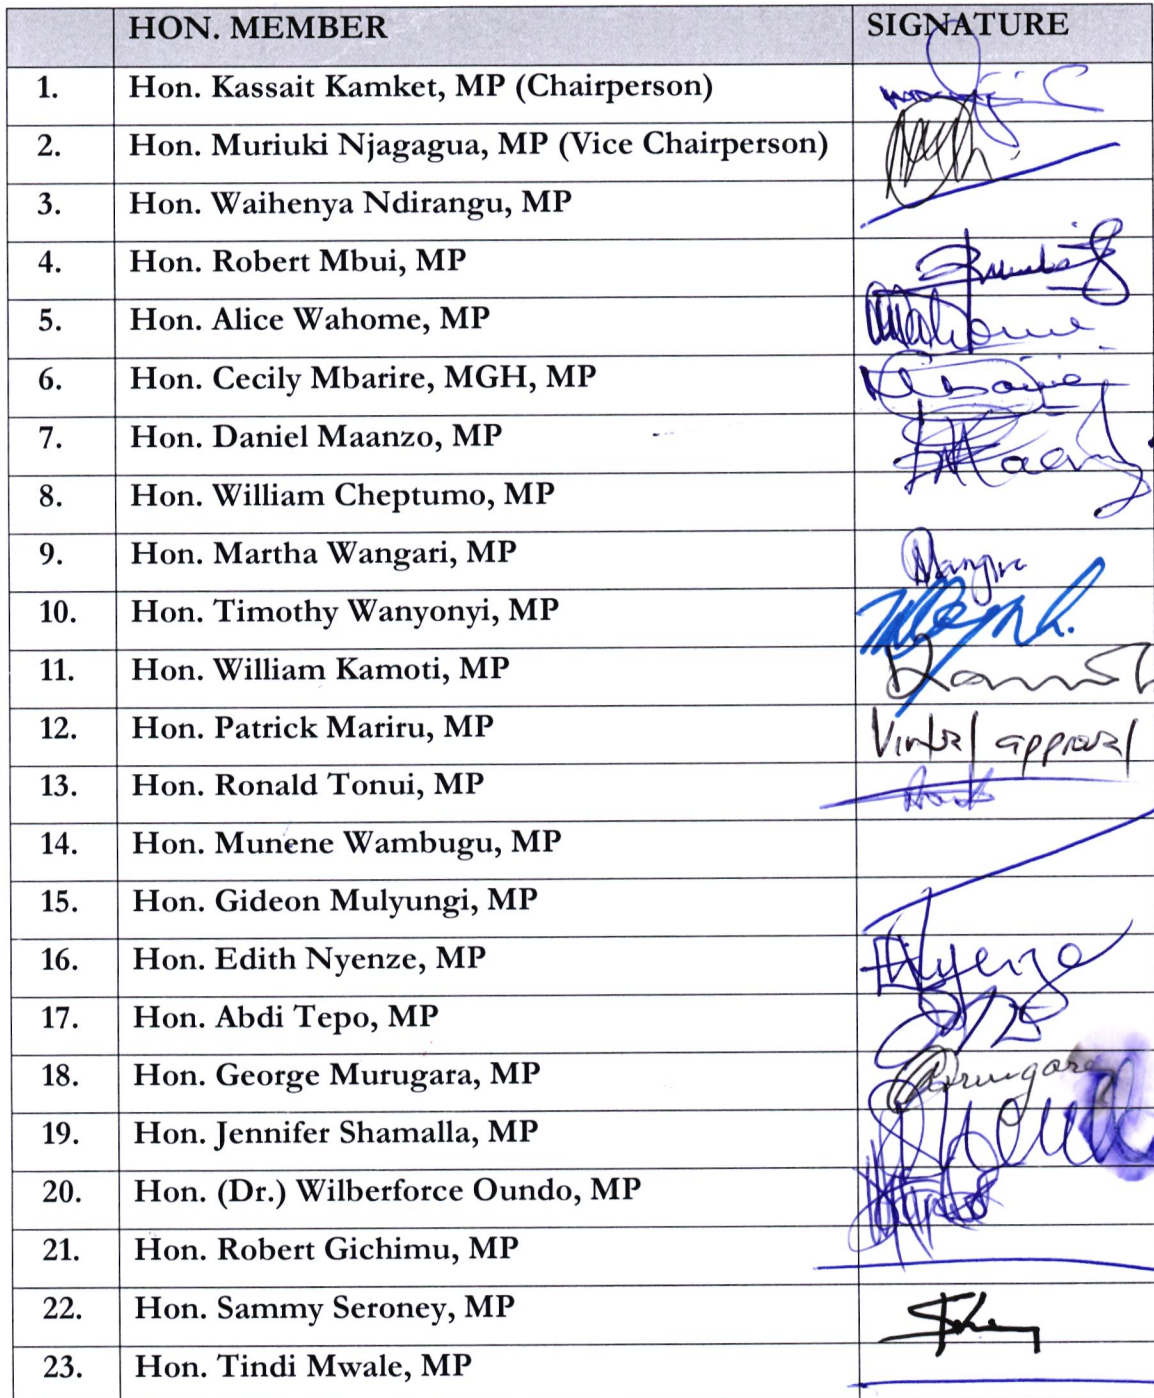 HON. MEMBER SIGNATURE
1. Hon. Kassait Kamket, MP (Chairperson)
2. Hon. Muriuki Njagagua, MP (Vice Chairperson)
3. Hon. Waihenya Ndirangu, MP
4. Hon. Robert Mbui, MP
5. Hon. Alice Wahome, MP
6. Hon. Cecily Mbarire, MGH, MP
7. Hon. Daniel Maanzo, MP
8. Hon. William Cheptumo, MP
9. Hon. Martha Wangari, MP
10. Hon. Timothy Wanyonyi, MP
11. Hon. William Kamoti, MP
12. Hon. Patrick Mariru, MP Virtual approval
13. Hon. Ronald Tonui, MP
14. Hon. Munene Wambugu, MP
15. Hon. Gideon Mulyungi, MP
16. Hon. Edith Nyenze, MP
17. Hon. Abdi Tepo, MP
18. Hon. George Murugara, MP
19. Hon. Jennifer Shamalla, MP
20. Hon. (Dr.) Wilberforce Oundo, MP
21. Hon. Robert Gichimu, MP
22. Hon. Sammy Seroney, MP
23. Hon. Tindi Mwale, MP